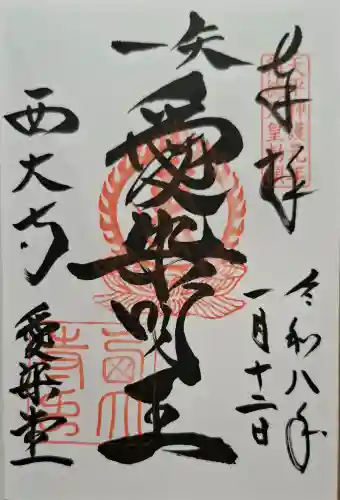 奉拝
令和八年
一月十二日
一矢
愛染明王
西大寺
愛染堂